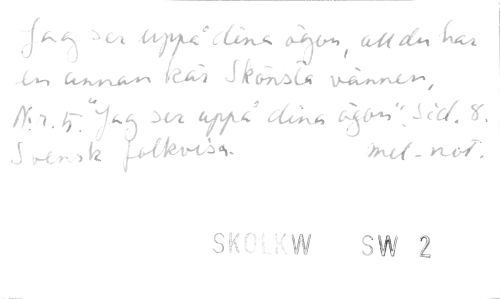 Jag ser uppå dina ögon, att du har
en annan kär Skönsta vännen,
N:r. 5. "Jag ser uppå dina ögon". Sid. 8.
Svensk folkvisa. mel-not.
SKOLKW SW 2